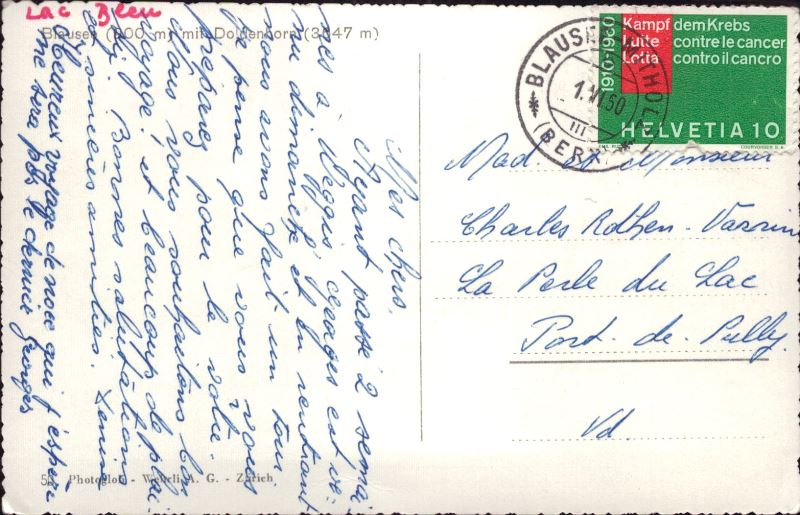 Lac Bleu
Blausee (900 m) mit Doldenhorn (3647 m)
Mes chers,
Ayant passé 2 semai-
nes à Weggis, Georges est ve-
nu dimanche et en rentrant
nous avons fait un tour.
Je pense que vous vous
préparez pour le votre.
Nous vous souhaitons bon
voyage et beaucoup de plai-
sir. Bonnes salutations
et sincères amitiés.
Heureux voyage de noce qui j'espère
ne sera pas le dernier Georges
Photoglob - Wehrli A. G. - Zürich
BLAUSEE-MITHOLZ
1.VI.60
(BERN)
1910-1960
Kampf dem Krebs
Lutte contre le cancer
Lotta contro il cancro
HELVETIA 10
COURVOISIER S.A.
Mad. et Monsieur
Charles Rothen-
La Perle du Lac
Port-de-Pully
Vd.